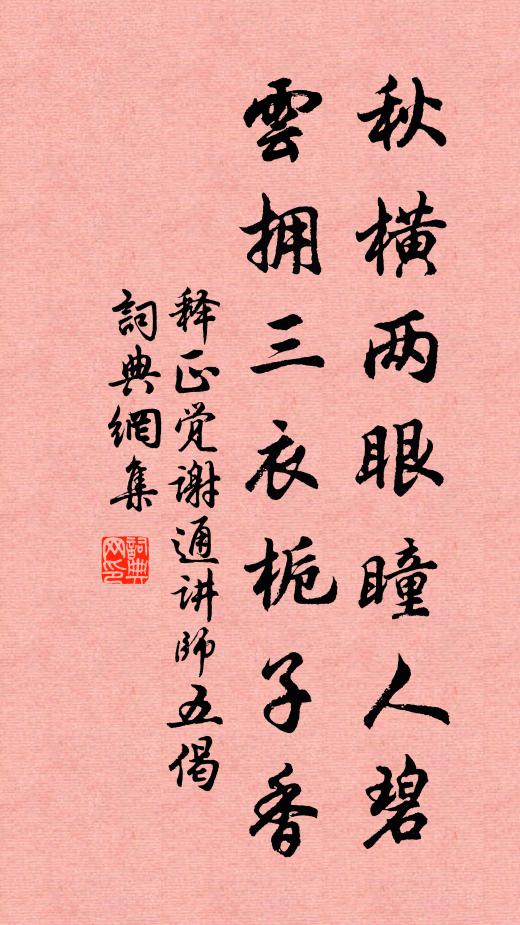 秋橫两眼瞳人碧
雲拥三衣栀子香
释正觉谢通讲师五偈
詞典網集
詞典网印